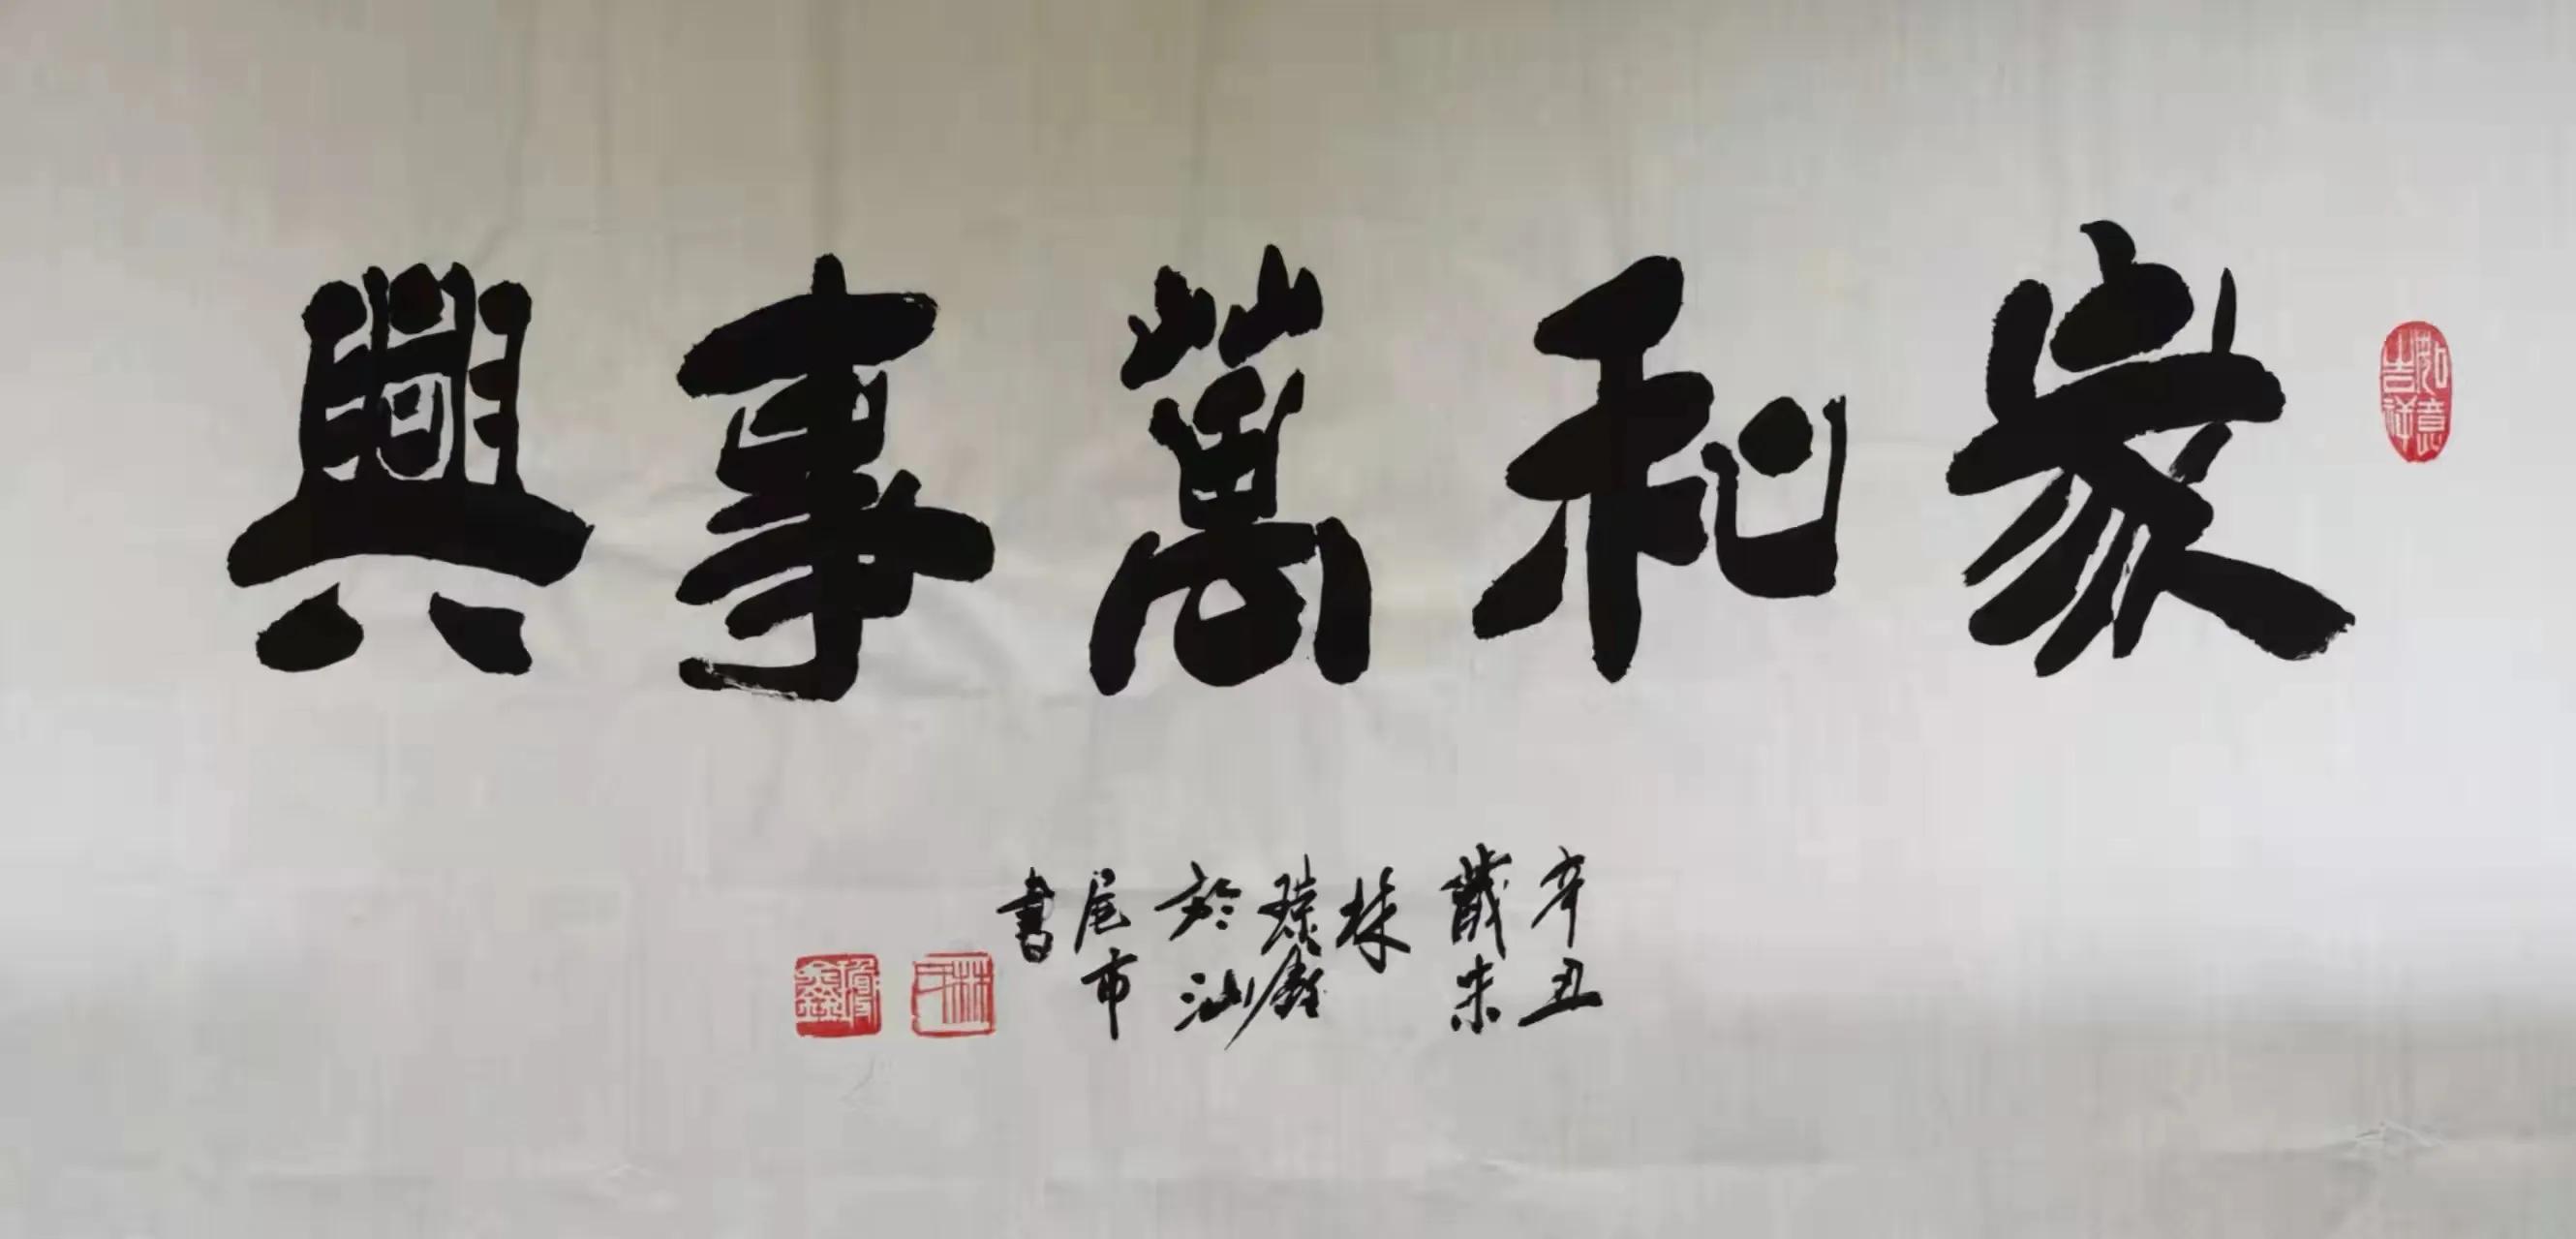 家和萬事興
如意吉祥
辛丑
歲朱
林
於汕
尾市
書
林